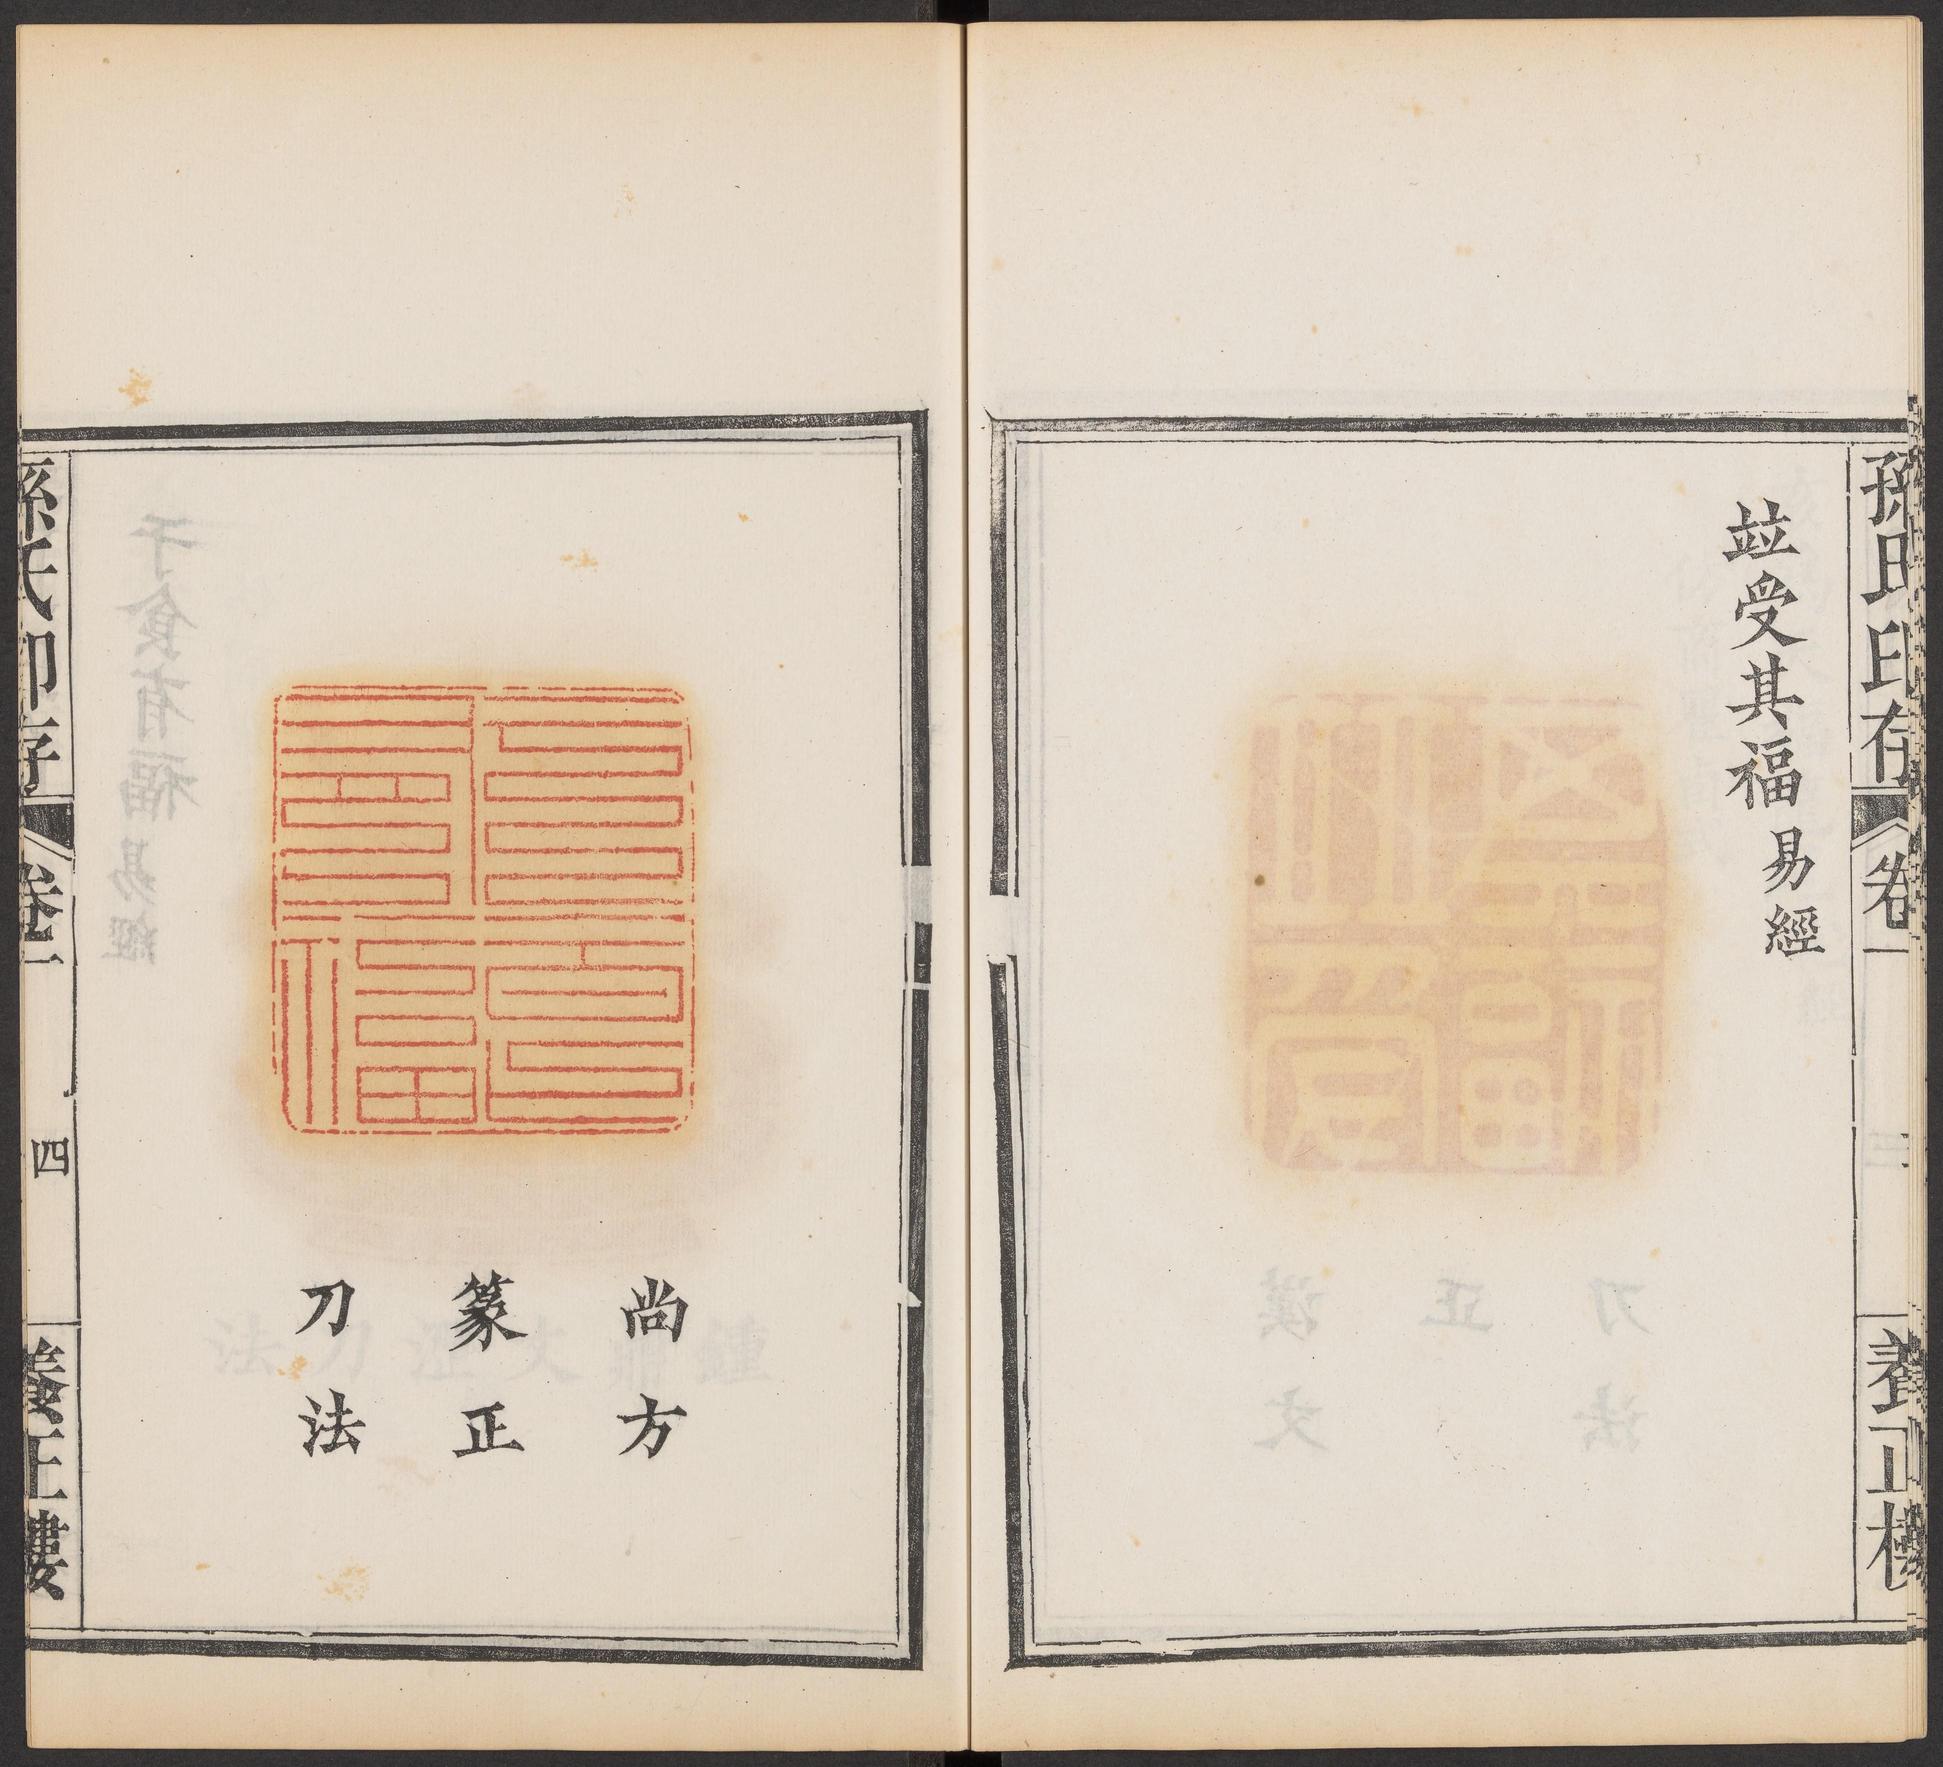 孫氏印存
卷一
養正樓
竝受其福易經
尚方
篆正
刀法
孫氏印存
卷一
四
養正樓